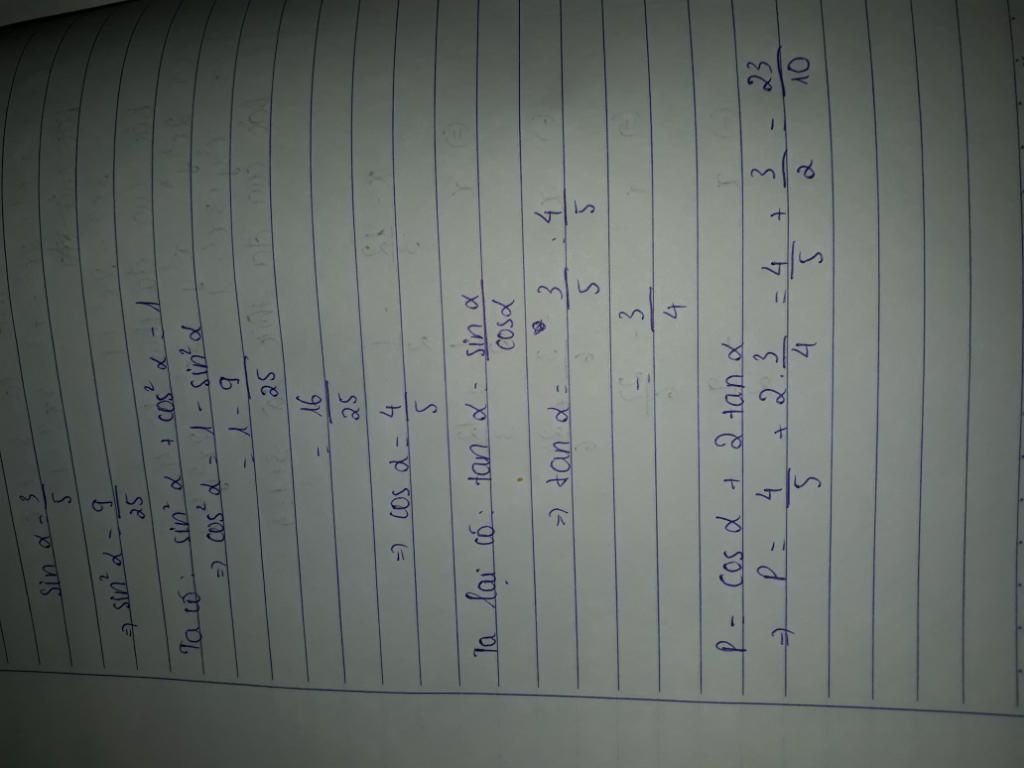 sin α = 3/5
=> sin² α = 9/25
Ta có: sin² α + cos² α = 1
=> cos² α = 1 - sin² α
= 1 - 9/25
= 16/25
=> cos α = 4/5
Ta lại có: tan α = sin α/cos α
=> tan α = 3/5 : 4/5
= 3/4
P = cos α + 2 tan α
=> P = 4/5 + 2. 3/4 = 4/5 + 3/2 = 23/10